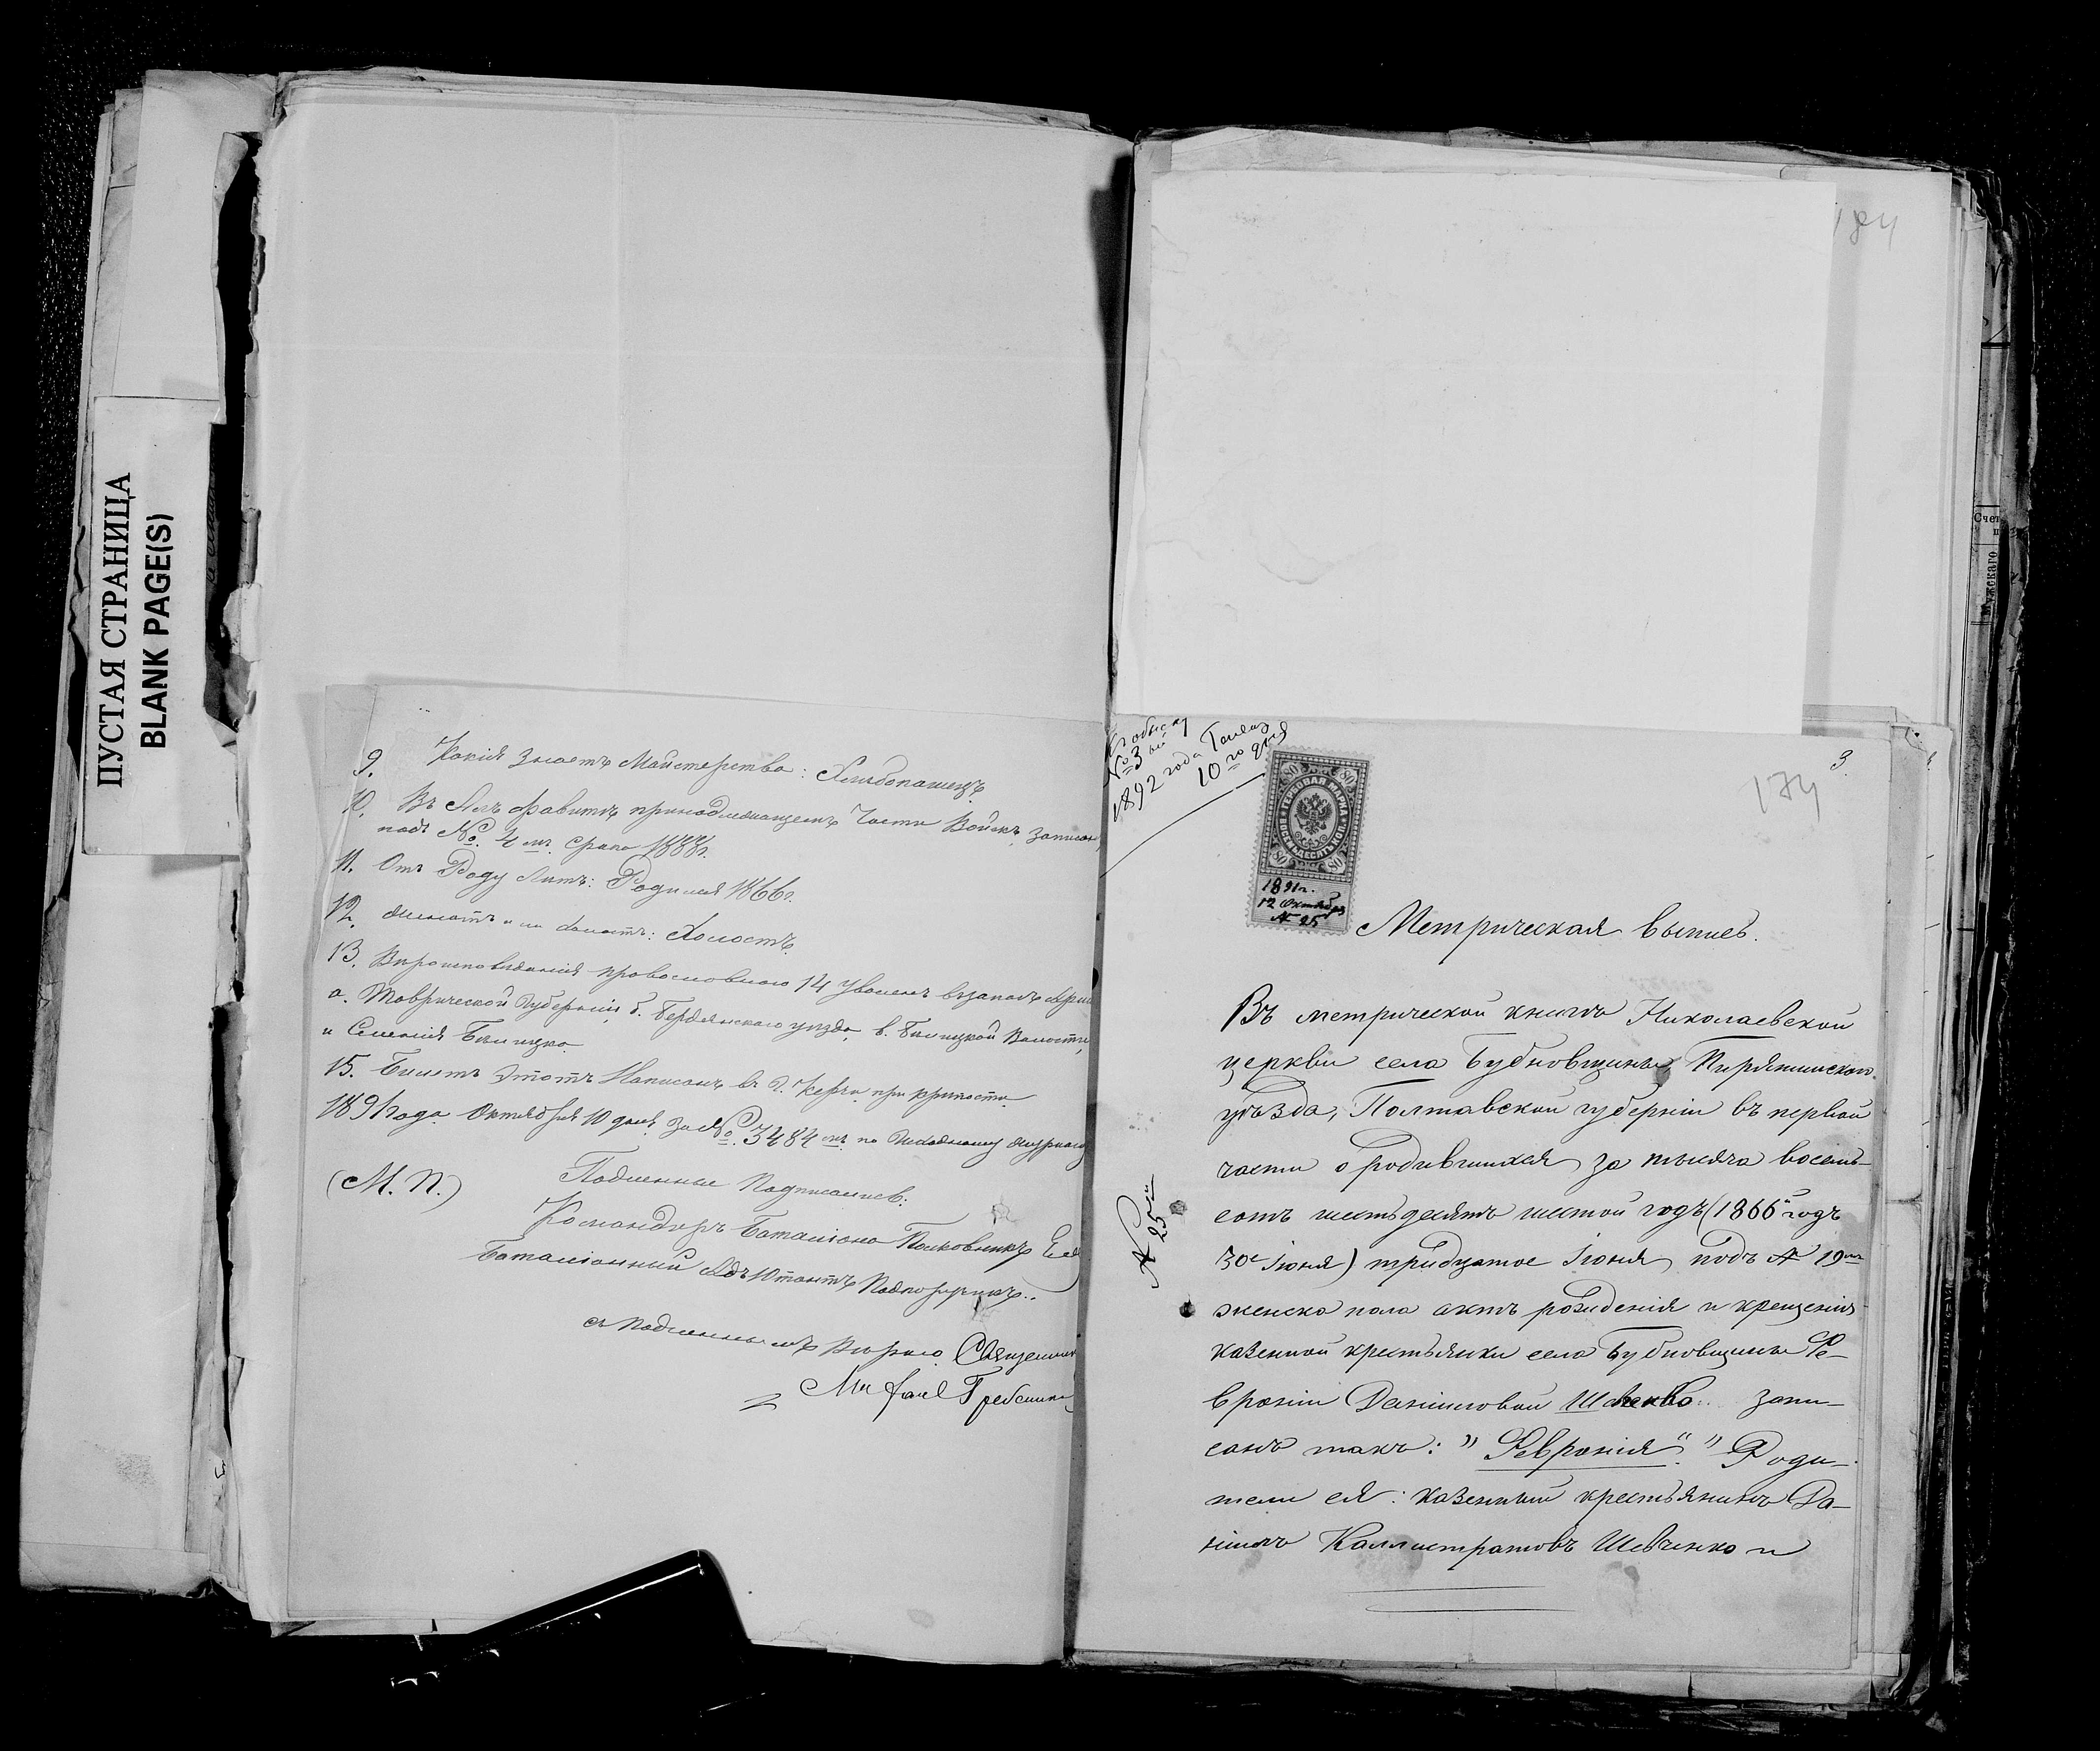 ПУСТАЯ СТРАНИЦА
BLANK PAGE(S)
9. Какія знаетъ Майстерства: Хлѣбопашецъ
10. Въ Алъфавитѣ принадлежащемъ Части Войскъ, записан
подъ №. 4 мъ срока 1888г.
11. Отъ Роду Лѣтъ: Родился 1866г.
12. женатъ или холостъ: Холостъ
13. Вѣроисповѣданія православнаго 14 Уволенъ въ запасъ Арміи
а. Таврической Губерніи, б. Бердянскаго уѣзда, в. Волости,
и Селенія
15. Билетъ Этотъ Написанъ въ г. Керчи при крѣпости
1891 года Октября 10 дня за №. 3484 мъ по Исходящему журналу
(М. П.) Подленные Подписались:
Командиръ Баталіона Полковникъ
Баталіонный Адъютантъ Подпоручикъ..
съ подленнымъ вѣрно Священник
184
Къ обыску
№ 3 ій
1892 года Генваря
10 го дня
3.
174
80 80
ГЕРБОВАЯ МАРКА ВОСЕМЬДЕСЯТЪ КОП.
80 80
1891 г.
12 Октября
№ 25
Метрическая выпись.
№ 25
Въ метрической книгѣ Николаевской
церкви села Бубновщины Пирятинскаго
уѣзда, Полтавской губерніи въ первой
части о родившихся, за тысяча восемь-
сотъ шестьдесятъ шестой годъ (1866й годъ
30е Іюня) тридцатое Іюня, подъ № 19мъ
женска пола актъ рожденія и крещенія
казенной крестьянки села Бубновщины Фе-
вроніи Даниловой Шевченко запи-
санъ такъ: „Февронія“. „Роди-
тели ея: казенный крестьянинъ Да-
ніилъ Каллистратовъ Шевченко и
Счет
Мужскаго